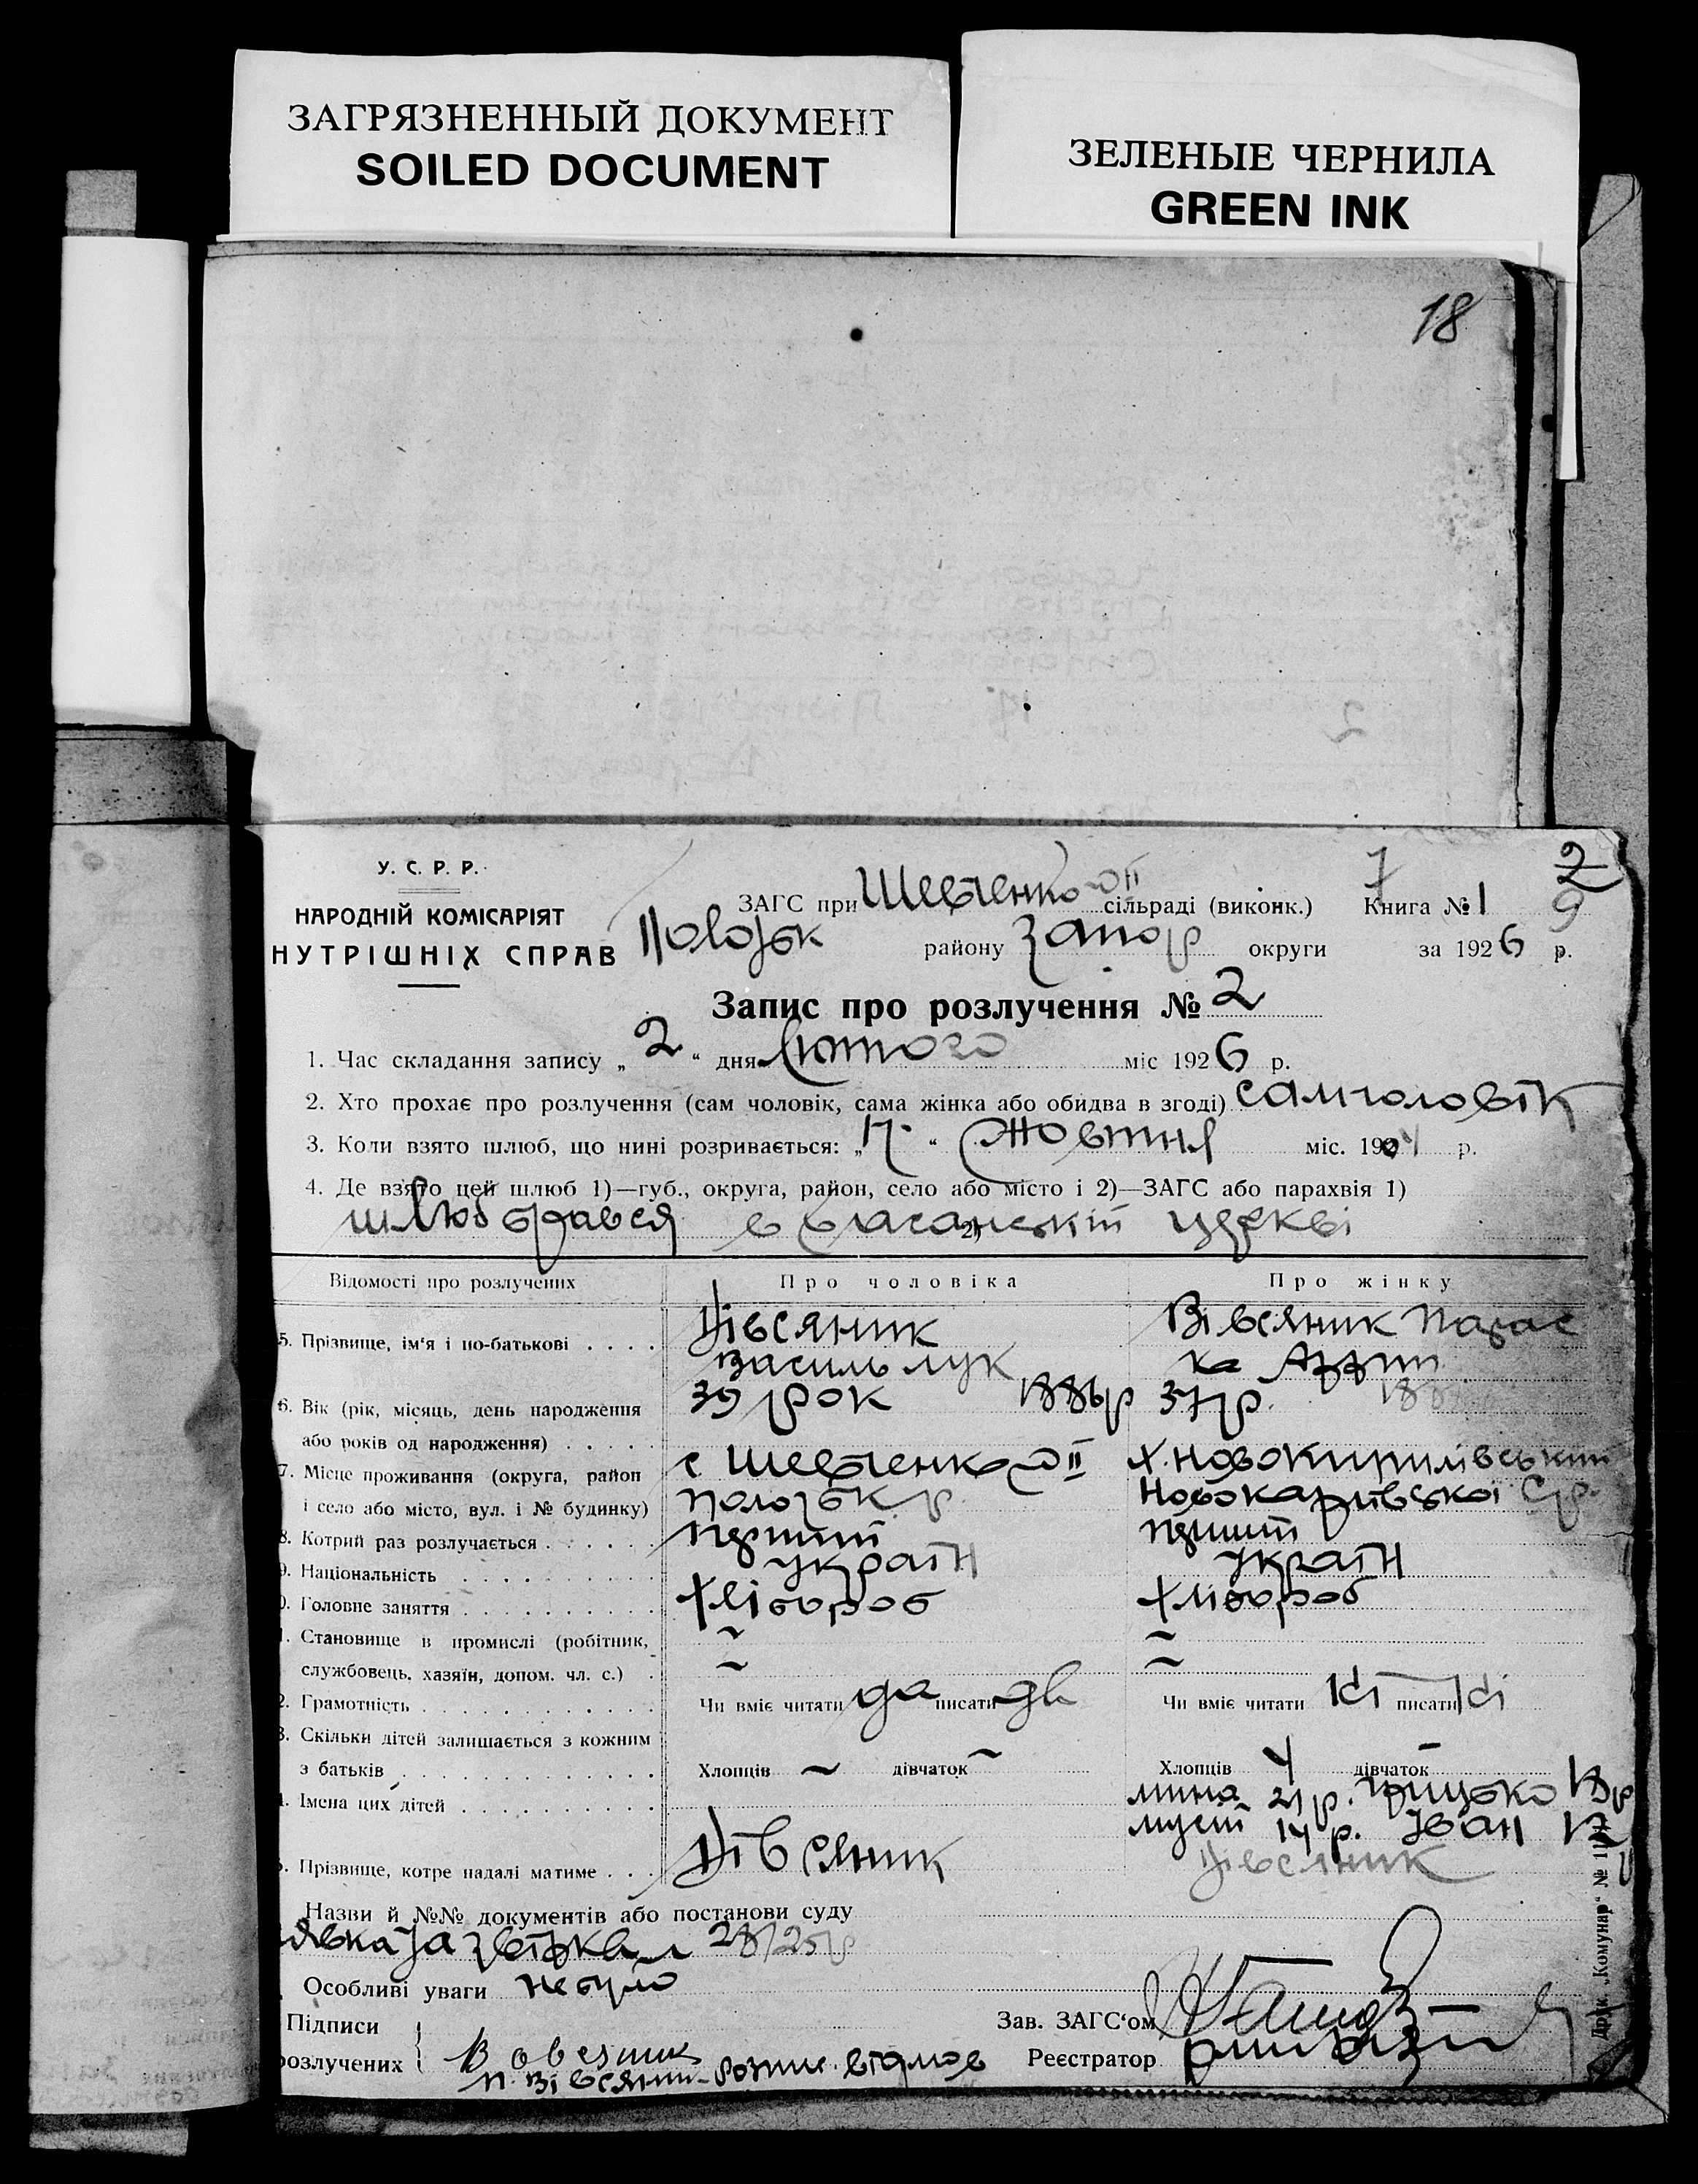 ЗАГРЯЗНЕННЫЙ ДОКУМЕНТ
SOILED DOCUMENT
ЗЕЛЕНЫЕ ЧЕРНИЛА
GREEN INK
18
У. С. Р. Р.
НАРОДНІЙ КОМІСАРІЯТ
НУТРІШНІХ СПРАВ
7
2
9
ЗАГС при Шевченко II сільраді (виконк.) Книга № 1
Пологськ району Запор округи за 1926 р.
Запис про розлучення № 2
1. Час складання запису „ 2 “ дня Лютого міс 1926 р.
2. Хто прохає про розлучення (сам чоловік, сама жінка або обидва в згоді) сам чоловік
3. Коли взято шлюб, що нині розривається: „ 17 “ Жовтня міс. 190 р.
4. Де взято цей шлюб 1)—губ., округа, район, село або місто і 2)—ЗАГС або парахвія 1)
шлюб брався в 2) церкві
Відомості про розлучених Про чоловіка Про жінку
5. Прізвище, ім‘я і по-батькові . . . . Вівсяник Вівсяник Парас
Василь Лук ка
6. Вік (рік, місяць, день народження 39 рок 1886р 37 р.
або років од народження) . . . . .
7. Місце проживання (округа, район с Шевченко II Х. Новокирилівський
і село або місто, вул. і № будинку) Пологськ р. Новокарлівської С.р.
8. Котрий раз розлучається . . . . . . перший перший
9. Національність . . . . . . . . . Україн Україн
0. Головне заняття . . . . . . . . . . Хлібороб Хлібороб
1. Становище в промислі (робітник, ~ ~
службовець, хазяїн, допом. чл. с.) . ~ ~
2. Грамотність . . . . . . . . . . . . Чи вміє читати да писати да Чи вміє читати ні писати ні
3. Скільки дітей залишається з кожним
з батьків . . . . . . . . . . . . . Хлопців ~ дівчаток ~ Хлопців 4 дівчаток –
4. Імена цих дітей . . . . . . . . . . мина 21 р. Грицько 18 р
мусій 14 р. Іван 12
5. Прізвище, котре надалі матиме . . . Вівсяник Вівсяник
Назви й №№ документів або постанови суду
28/25 р
Особливі уваги не було
Підписи
розлучених
П. Вівсяник
Зав. ЗАГС‘ом
Реєстратор
Друк. „Комунар“ №